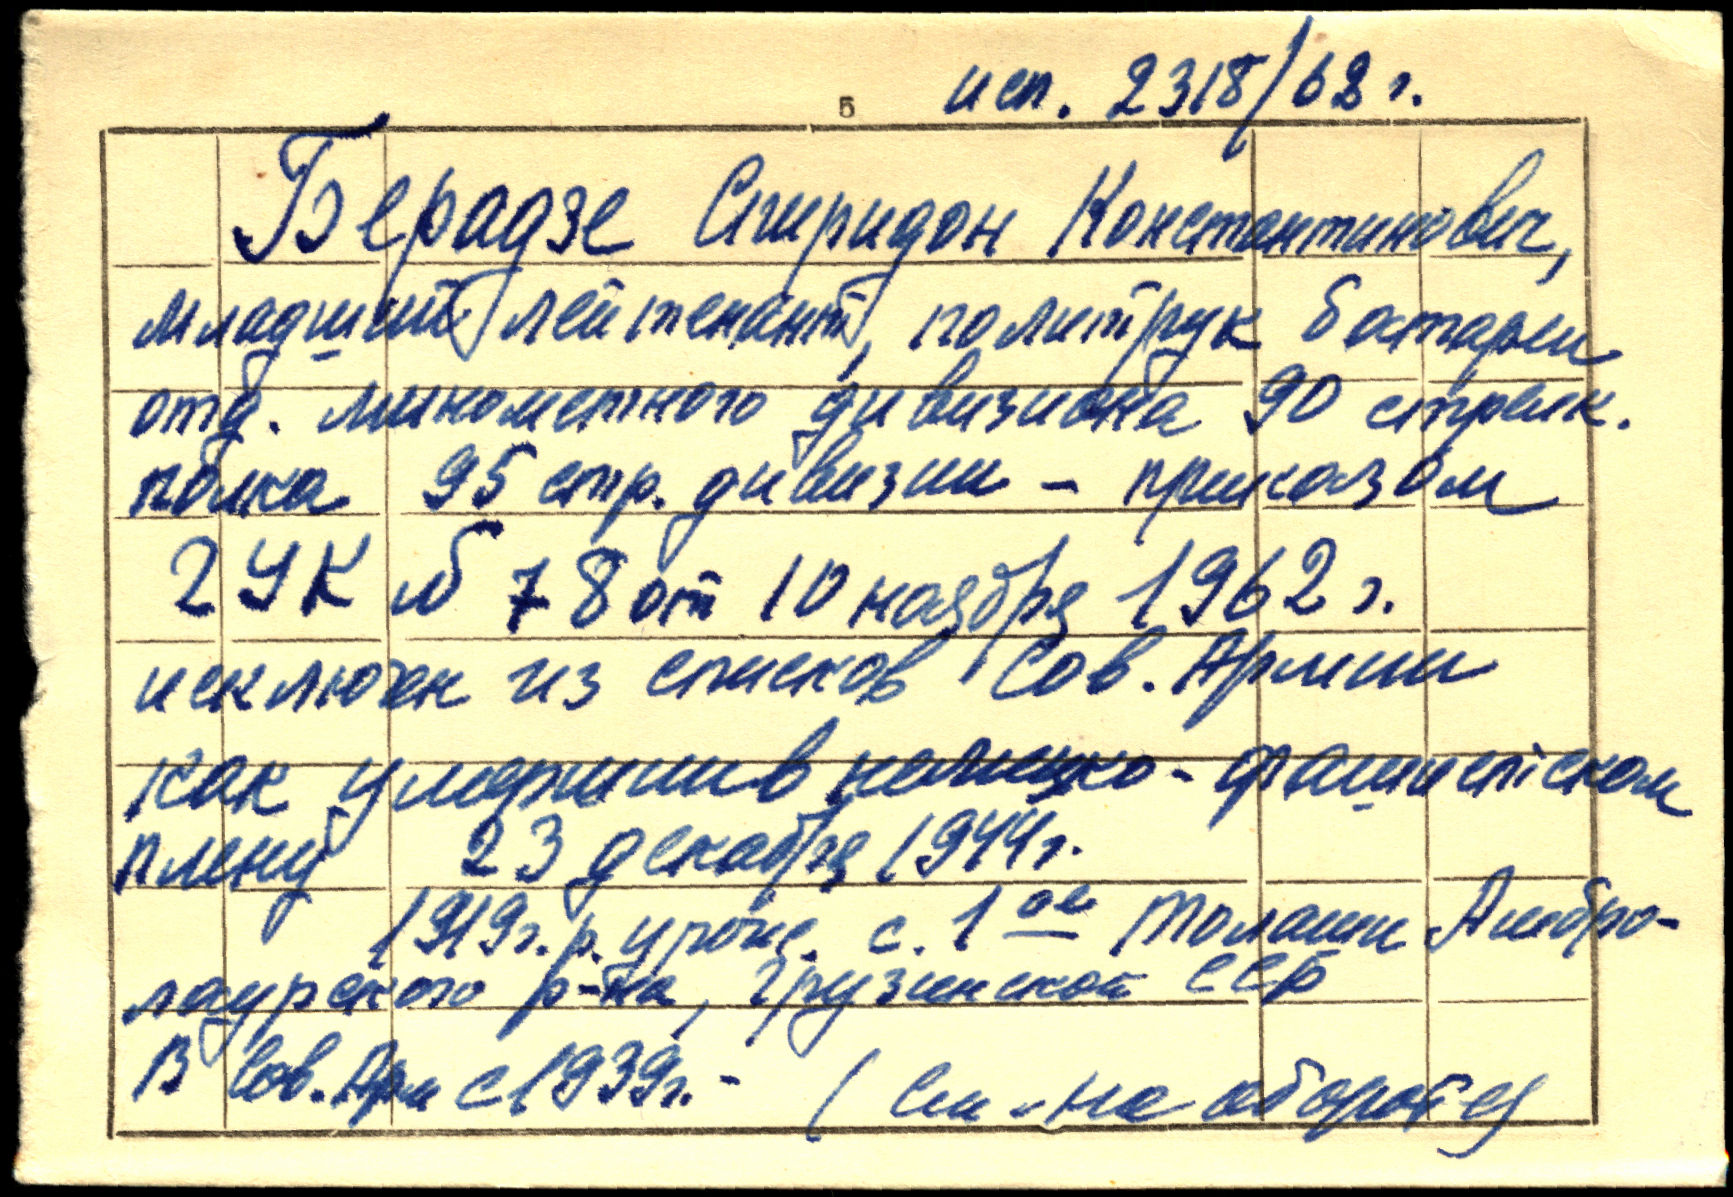 исп. 2318/62 г.
5
Берадзе Спиридон Константинович,
младший лейтенант, политрук батареи
отд. минометного дивизиона 90 стрелк.
полка 95 стр. дивизии - приказом
ГУК № 78 от 10 ноября 1962 г.
исключен из списков Сов. Армии
как умерший в немецко-фашистском
плену 23 декабря 1944 г.
1919 г. р. урож. с. 1 ое Толаши Амбро-
лаурского р-на, Грузинской ССР
В Сов. Арм с 1939 г. - (См. на обороте)